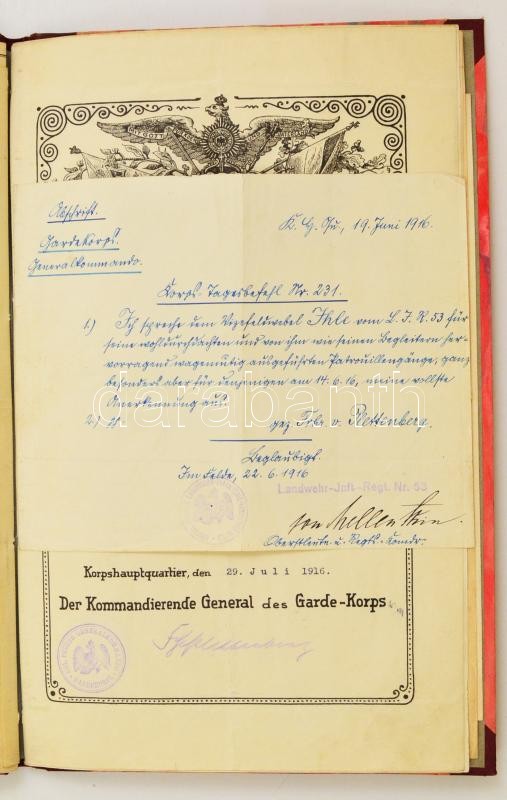 MIT GOTT
VATERLAND
Abschrift.
Gardekorps.
Generalkommando.
K. H. Qu., 19. Juni 1916.
Korps-Tagesbefehl Nr. 231.
1.) Ich spreche dem Vizefeldwebel Ihle vom L. I. R. 53 für
seine wohldurchdachten und von ihm wie seinen Begleitern her-
vorragend wagemutig ausgeführten Patrouillengänge, ganz
besonders aber für denjenigen am 14.6.16, meine vollste
Anerkennung aus.
2.)
gez. Frhr. v. Plettenberg.
Beglaubigt.
Im Felde, 22.6.1916
Landwehr-Jnft.-Regt. Nr. 53
von Mellenthin.
Oberstleutn. u. Regts.-Komdr.
darabanth
Korpshauptquartier, den 29. Juli 1916.
Der Kommandierende General des Garde-Korps